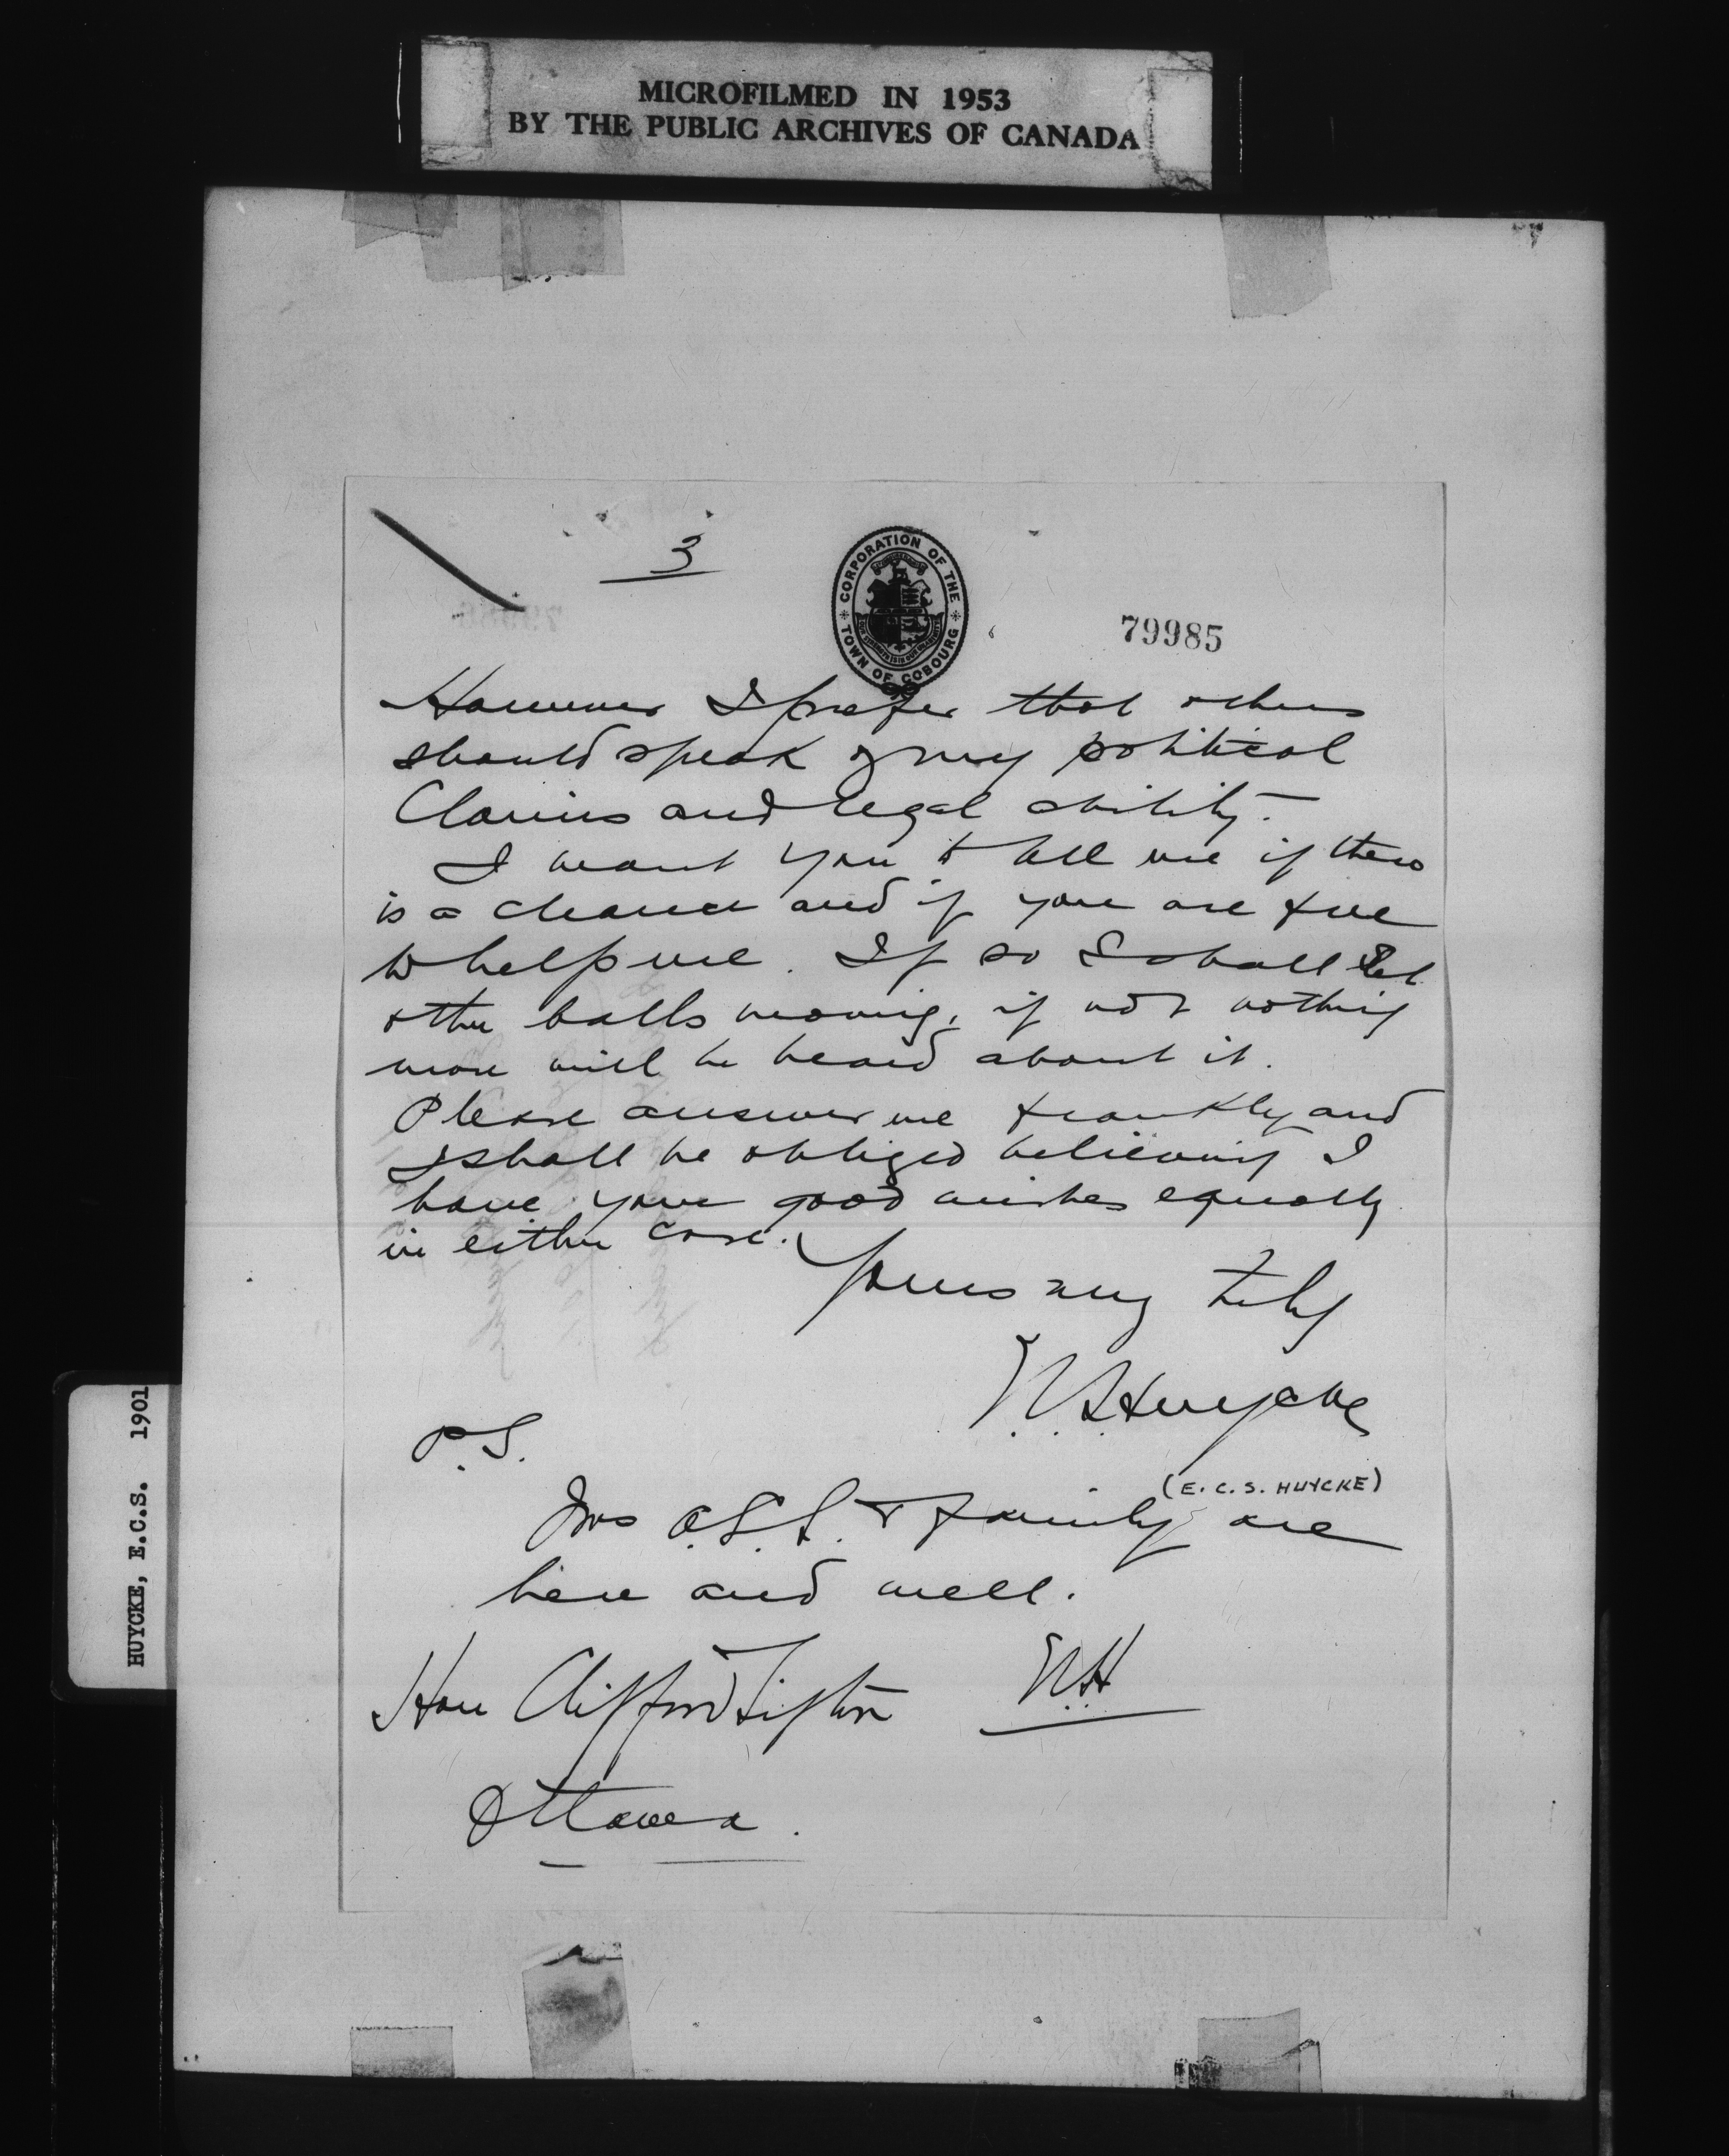 MICROFILMED IN 1953
BY THE PUBLIC ARCHIVES OF CANADA
3
CORPORATION OF THE TOWN OF COBOURG
79985
However I prefer that others
should speak of my political
Claims and legal ability.
I want you to tell me if there
is a chance and if you are free
to help me. If so I shall set
other balls moving, if not nothing
more will be heard about it.
Please answer me frankly and
I shall be obliged believing I
have your good wishes equally
in either case.
Yours very truly
Huycke
P.S.
(E. C. S. HUYCKE)
Mrs & family are
here and well.
Hon Clifford Sifton
Ottawa.
HUYCKE, E.C.S. 1901